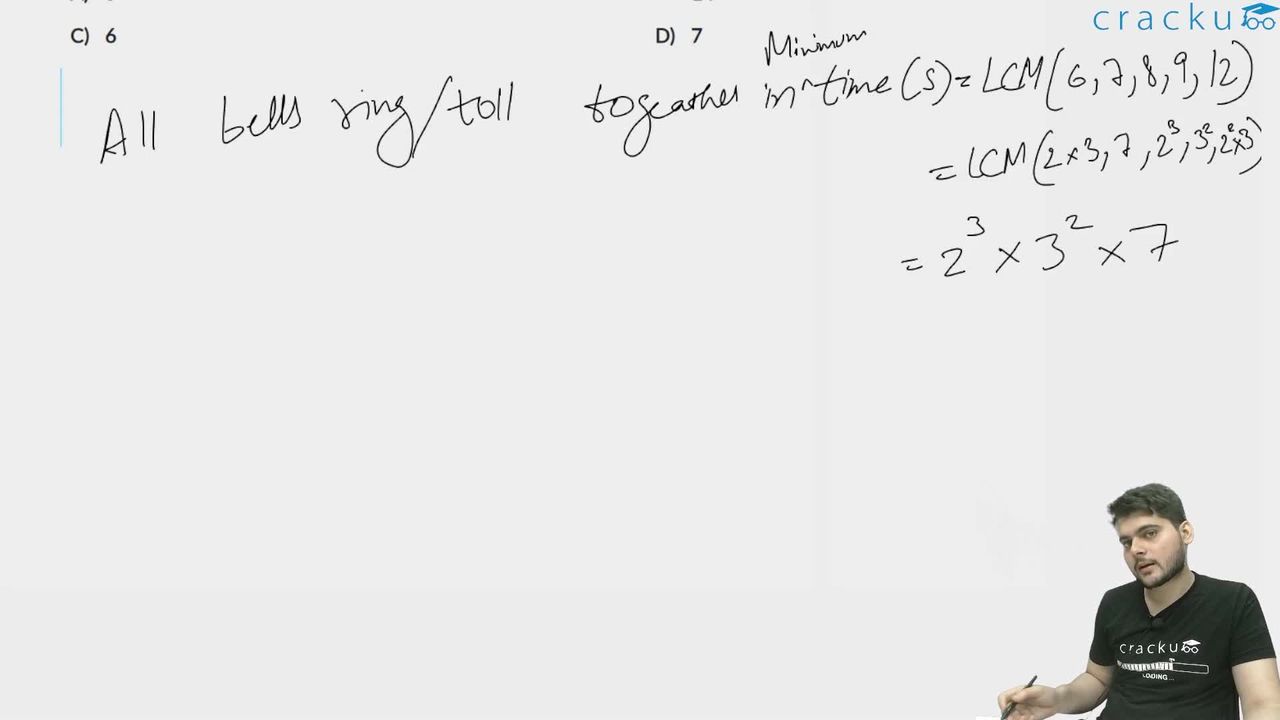 cracku
C) 6
D) 7
All bells ring/toll togeather in Minimum time (s) = LCM(6,7,8,9,12)
= LCM(2×3, 7, 2³, 3², 2²×3)
= 2³ × 3² × 7
cracku
LOADING...